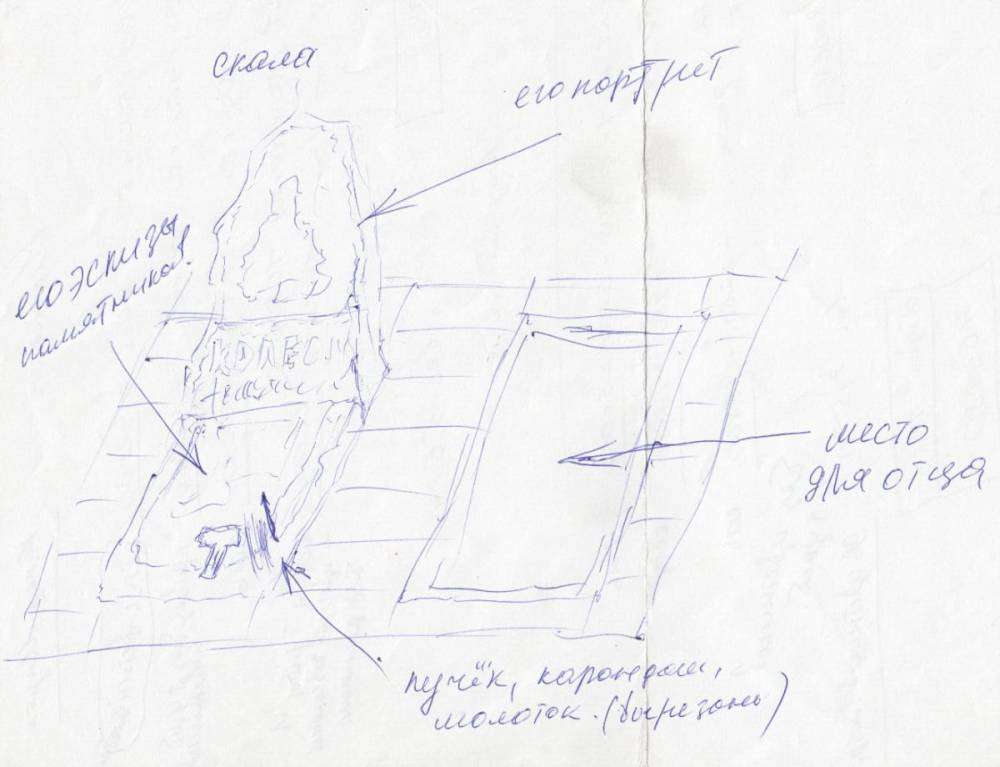 скала
его портрет
его эскизы
памятников!
место
для отца
пучёк, карандаш,
молоток. (вырезань)